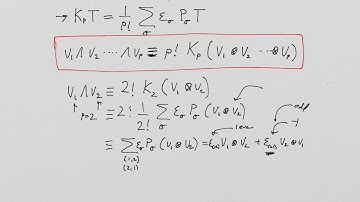 → K_p T = 1/p! Σ_σ ε_σ P_σ T
V₁ ∧ V₂ ···· ∧ V_p ≡ p! K_p (V₁ ⊗ V₂ ··· ⊗ V_p)
V₁ ∧ V₂ ≡ 2! K₂ (V₁ ⊗ V₂)
p=2 ≡ 2! 1/2! Σ_σ ε_σ P_σ (V₁ ⊗ V₂) odd
even -1
≡ Σ_σ ε_σ P_σ (V₁ ⊗ V₂) = ε_(1,2) V₁ ⊗ V₂ + ε_(2,1) V₂ ⊗ V₁
(1,2)
(2,1)